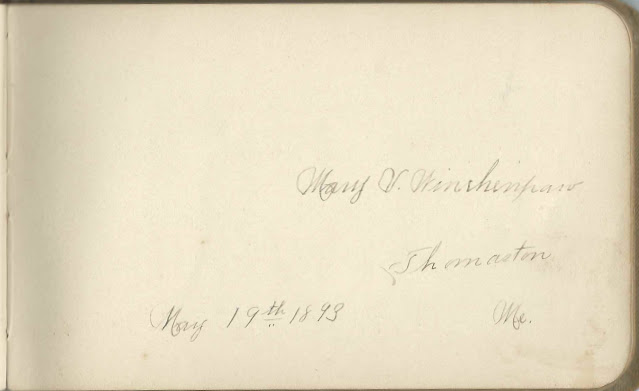 Mary V. Winchenpaw
Thomaston
May 19th 1893 Me.